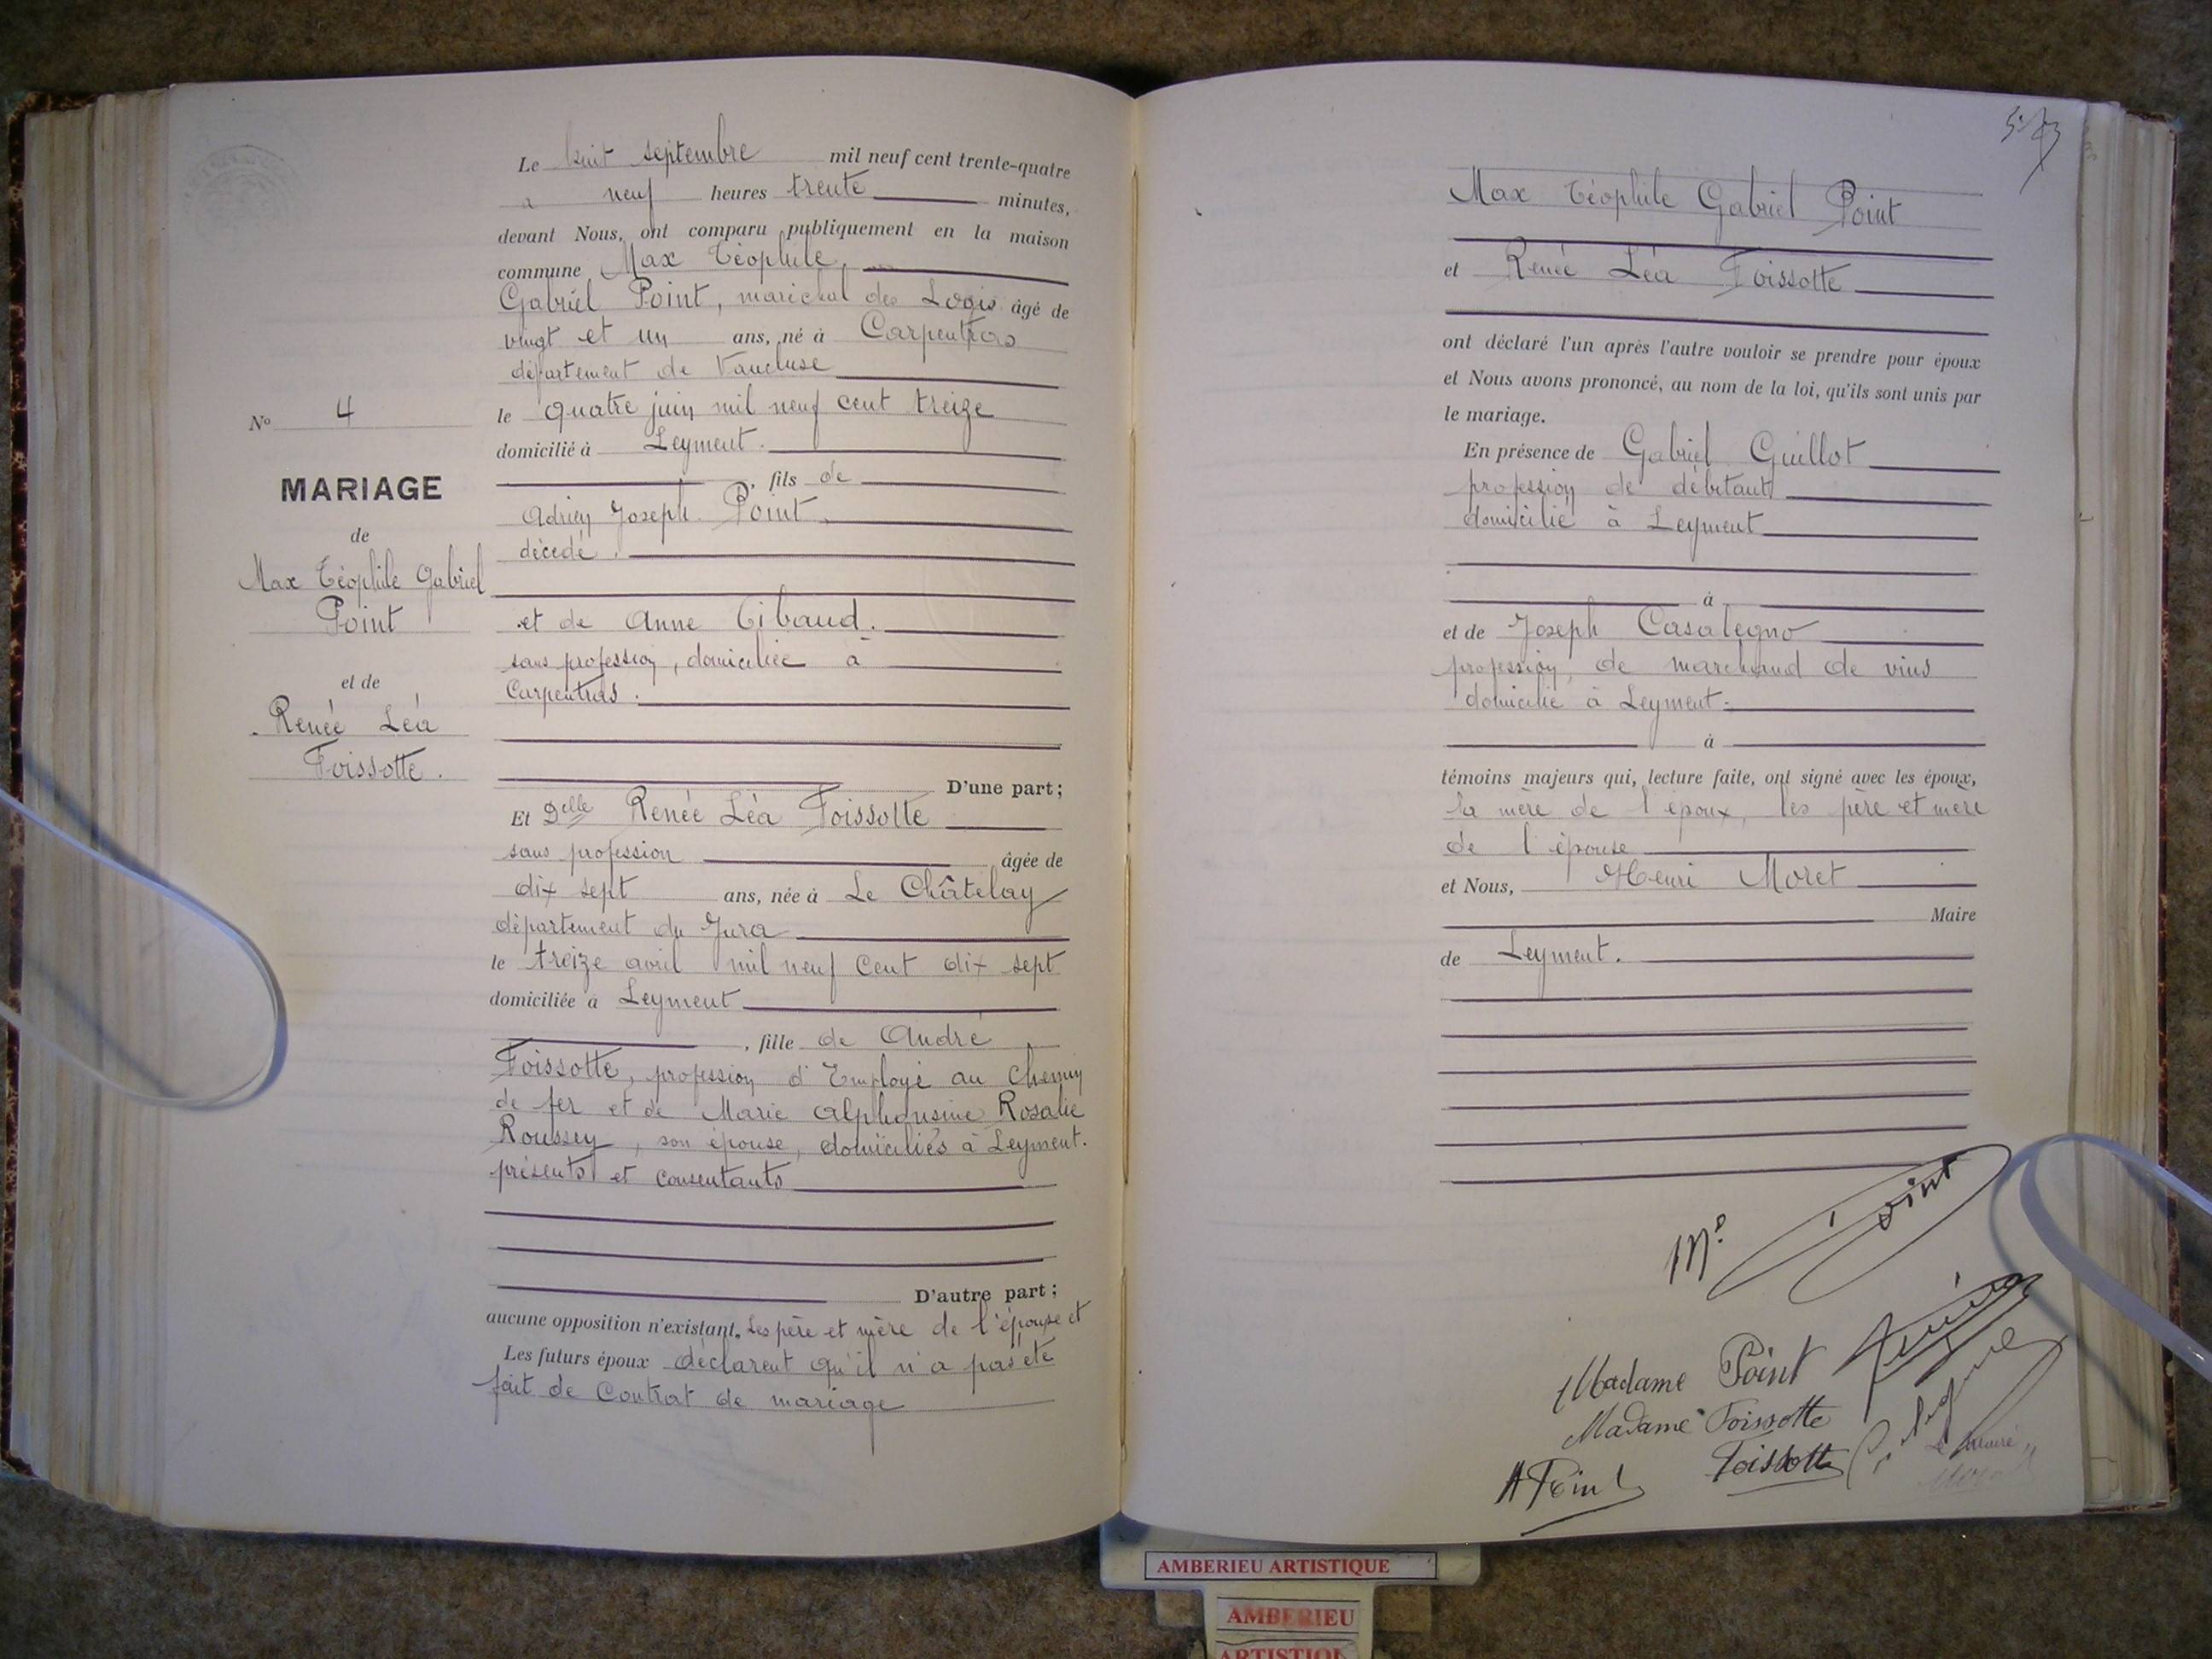 Le huit septembre mil neuf cent trente-quatre
a neuf heures trente minutes,
devant Nous, ont comparu publiquement en la maison
commune Max Téophile,
Gabriel Point, maréchal des Logis âgé de
vingt et un ans, né à Carpentras
département de Vaucluse
le quatre juin mil neuf cent treize
domicilié à Leyment.
, fils de
Adrien Joseph Point,
décédé.
et de Anne Tibaud.
sans profession, domiciliée à
Carpentras.
D'une part;
Et Delle Renée Léa Foissotte
sans profession âgée de
dix sept ans, née à Le Châtelay
département du Jura
le treize avril mil neuf cent dix sept
domiciliée à Leyment
, fille de André
Foissotte, profession d'Employé au Chemin
de fer et de Marie Alphonsine Rosalie
Roussey, son épouse, domiciliés à Leyment.
présents et consentants
D'autre part;
aucune opposition n'existant, Les père et mère de l'épouse et
Les futurs époux déclarent qu'il n'a pas été
fait de Contrat de mariage
No 4
MARIAGE
de
Max Téophile Gabriel
Point
et de
Renée Léa
Foissotte.
Max Téophile Gabriel Point
et Renée Léa Foissotte
ont déclaré l'un après l'autre vouloir se prendre pour époux
et Nous avons prononcé, au nom de la loi, qu'ils sont unis par
le mariage.
En présence de Gabriel Guillot
profession de débitant
domicilié à Leyment
à
et de Joseph Casalegno
profession, de marchand de vins
domicilié à Leyment.
à
témoins majeurs qui, lecture faite, ont signé avec les époux,
la mère de l'époux, les père et mère
de l'épouse
et Nous, Henri Moret
Maire
de Leyment.
Point
Madame Point
Madame Foissotte
Foissotte
A Point
Le Maire
AMBERIEU ARTISTIQUE
AMBERIEU